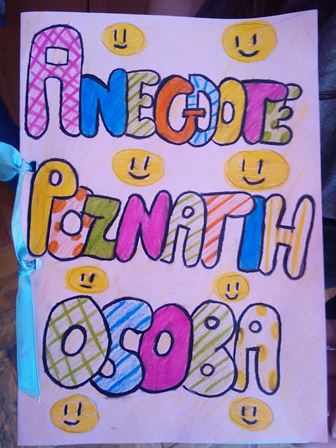 ANEGDOTE
POZNATIH
OSOBA